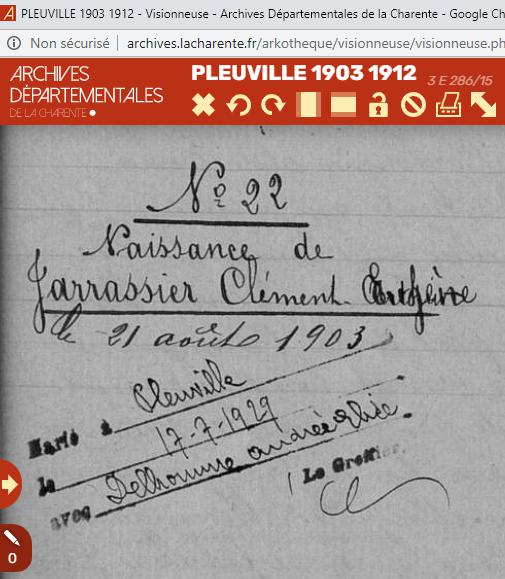 PLEUVILLE 1903 1912 - Visionneuse - Archives Départementales de la Charente - Google Ch
Non sécurisé | archives.lacharente.fr/arkotheque/visionneuse/visionneuse.ph
ARCHIVES
DÉPARTEMENTALES
DE LA CHARENTE
PLEUVILLE 1903 1912 3 E 286/15
Nº 22
Naissance de
Jarrassier Clément
le 21 août 1903
Marié à Pleuville
le 17-7-1929
avec Delhomme andrée alice.
Le Greffier.
0